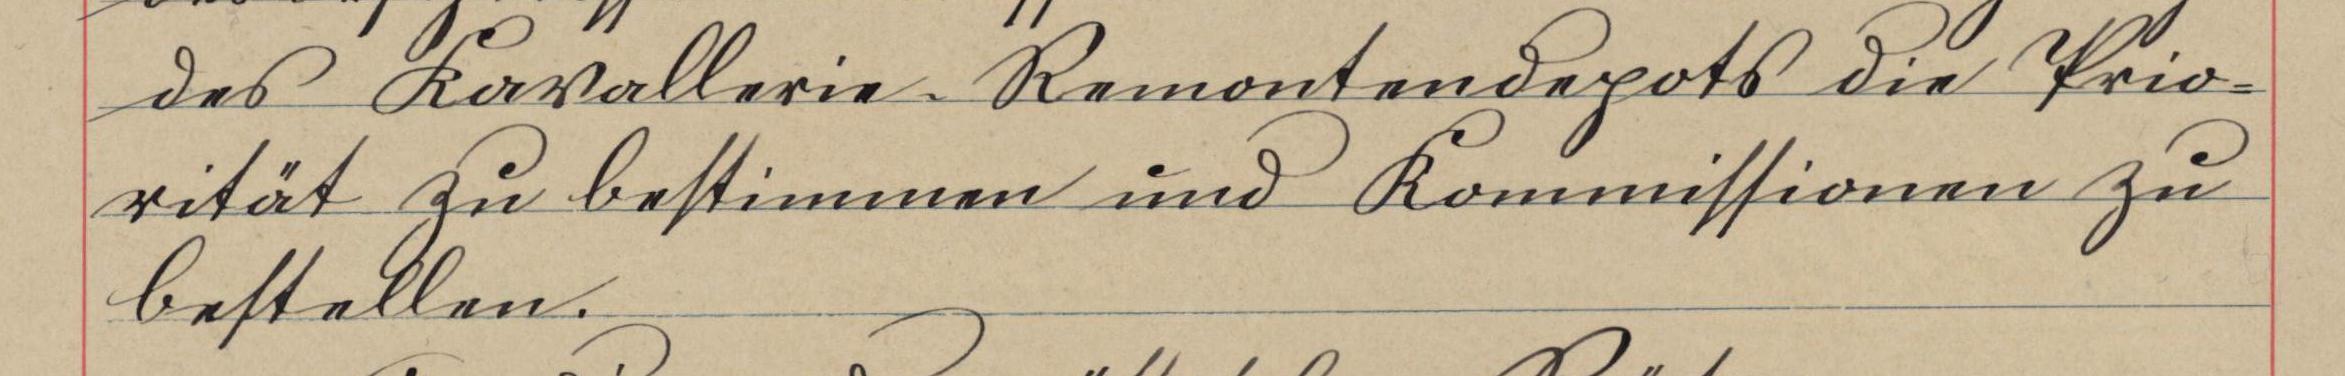 des Kavallerie-Remontendepots die Prio=
rität zu bestimmen und Kommissionen zu
bestellen.